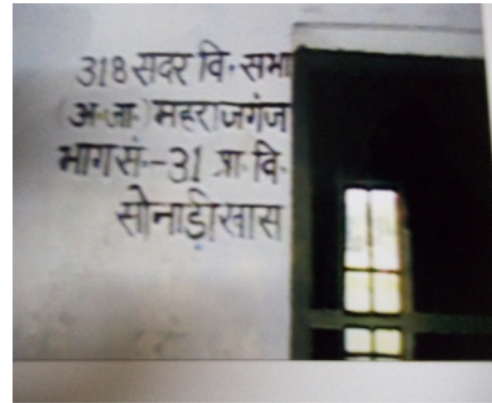 318 सदर वि॰ सभा
(अ॰जा॰) महराजगंज
भाग सं॰-31 प्रा॰ वि॰
सोनाड़ीखास